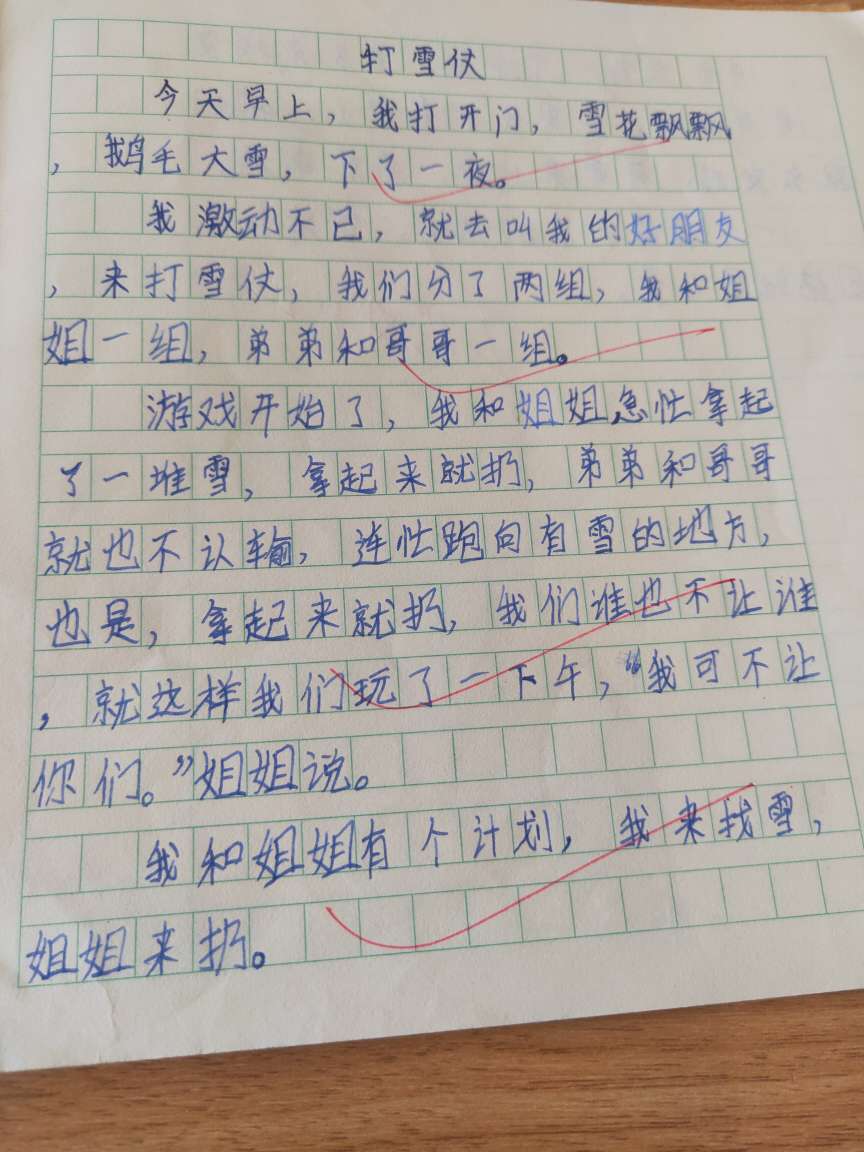 打雪仗
今天早上，我打开门，雪花飘飘
，鹅毛大雪，下了一夜。
我激动不已，就去叫我的好朋友
，来打雪仗，我们分了两组，我和姐
姐一组，弟弟和哥哥一组。
游戏开始了，我和姐姐急忙拿起
了一堆雪，拿起来就扔，弟弟和哥哥
就也不认输，连忙跑向有雪的地方，
也是，拿起来就扔，我们谁也不让谁
，就这样我们玩了一下午，“我可不让
你们。”姐姐说。
我和姐姐有个计划，我来找雪，
姐姐来扔。